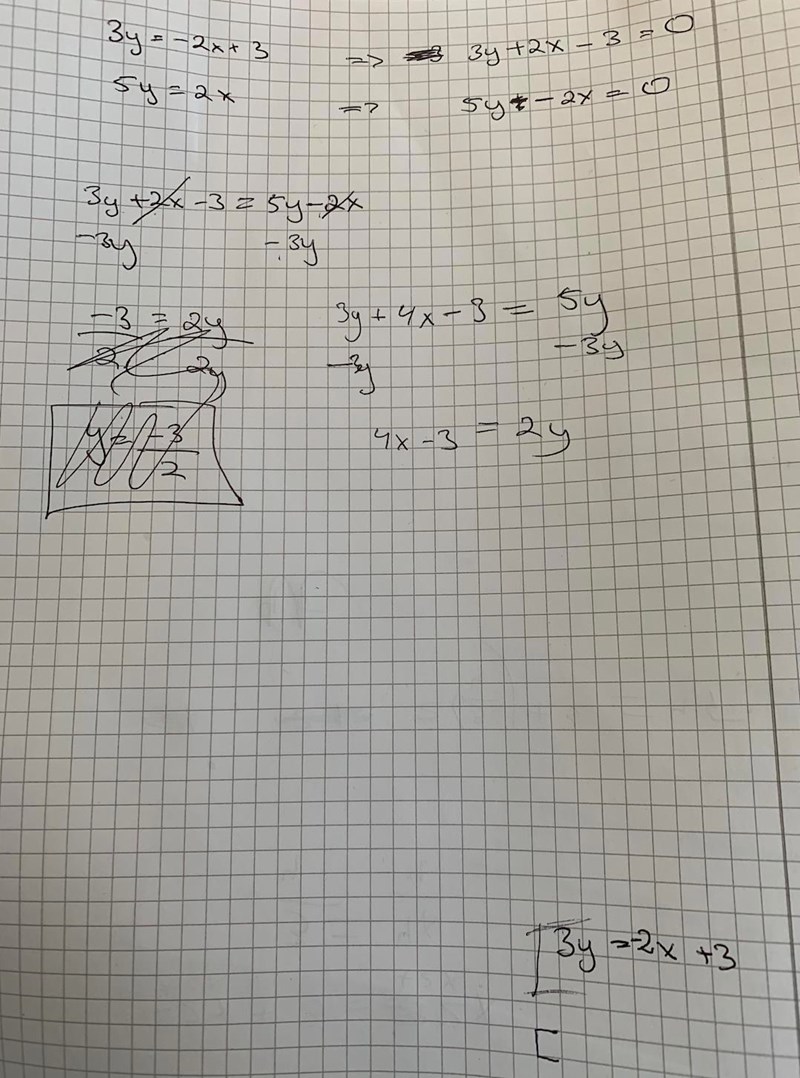 3y = -2x + 3 => 3y + 2x - 3 = 0
5y = 2x => 5y - 2x = 0
3y + 2x - 3 = 5y - 2x
-3y -3y
-3 = 2y
2 2y
y = -3
2
3y + 4x - 3 = 5y
-3y -3y
4x - 3 = 2y
3y = -2x + 3
[